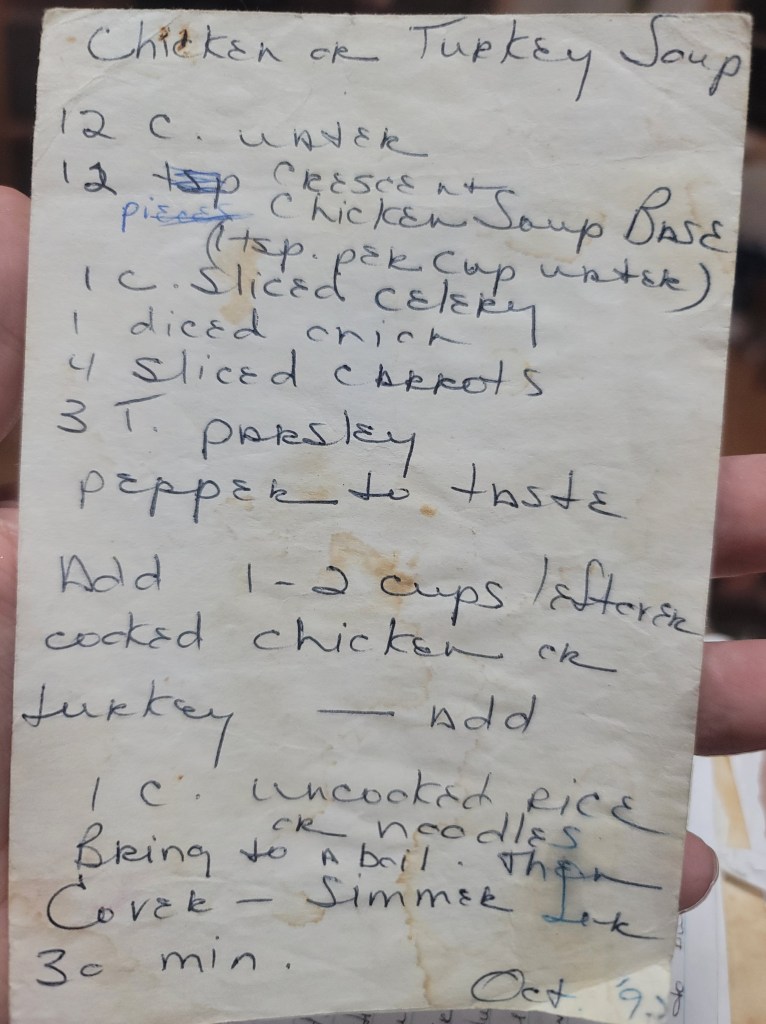 Chicken or Turkey Soup
12 C. water
12 tsp Crescent
pieces Chicken Soup Base
(1 tsp. per cup water)
1 C. Sliced celery
1 diced onion
4 sliced carrots
3 T. parsley
pepper to taste
Add 1-2 cups leftover
cooked chicken or
turkey — Add
1 C. uncooked rice
or noodles
Bring to a boil. Then
Cover — Simmer for
30 min.
Oct.